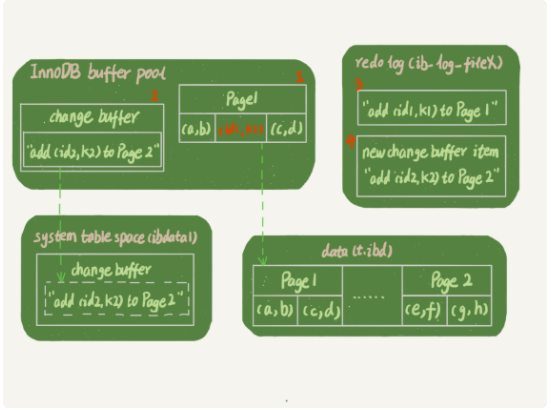 InnoDB buffer pool
1
Page1
(a,b)
(c,d)
2
change buffer
"add (id2,k2) to Page 2"
redo log (ib_log_fileX)
3
"add (id1,k1) to Page 1"
4
new change buffer item
"add (id2,k2) to Page 2"
system table space (ibdata1)
change buffer
"add (id2,k2) to Page 2"
data (t.ibd)
Page 1
(a,b)
(c,d)
......
Page 2
(e,f)
(g,h)